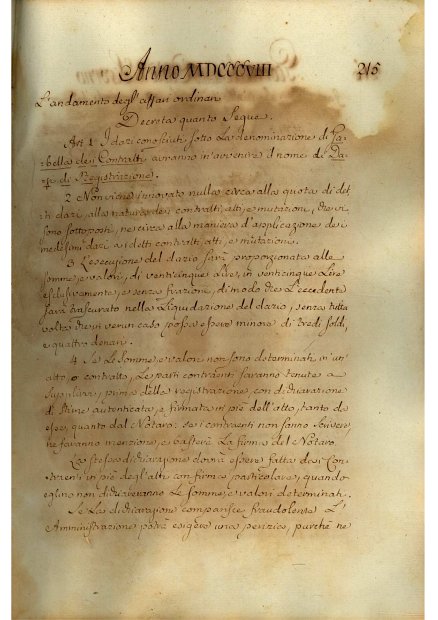 Anno MDCCCVIII 215
L'andamento degl'affari ordinari
Decreta quanto Segue.
Art. 1. I dazi conosciuti sotto la denominazione di Ga-
bella dei Contratti avranno in avvenire il nome di Da-
zi di Registrazione.
2 Non viene innovato nulla circa alla quota di det-
ti dazi, alla natura dei contratti, atti, e mutazioni, che vi
sono sottoposti, ne circa alla maniera d'applicazione dei
medesimi dazi ai detti contratti, atti, e mutazioni.
3 L'esecuzione del dazio sarà proporzionata alle
somme, e valori, di venticinque Lire, in venticinque Lire
esclusivamente, e senza frazioni, di modo che L'eccedente
sarà trascurato nella Liquidazione del dazio, senza tutta
volta che in verun caso possa essere minore di tredi soldi,
e quattro denari.
4 Se le somme e valori non sono determinati in un'
atto, o contratto, Le parti contraenti saranno tenute a
supplirvi, prima della registrazione, con dichiarazione
di Stime autenticata, e firmata in piè dell'atto, tanto da
esse, quanto dal Notaro: se i contraenti non sanno scrivere
ne faranno menzione, e basterà La firma del Notaro.
La stessa dichiarazione dovrà essere fatta dai Con-
traenti in piè degl'atti con firma particolare, quando
eglino non dichiareranno Le somme, e valori determinati.
Se La dichiarazione comparisce fraudolenta L'
Amministrazione potrà esigere una perizia, purchè ne